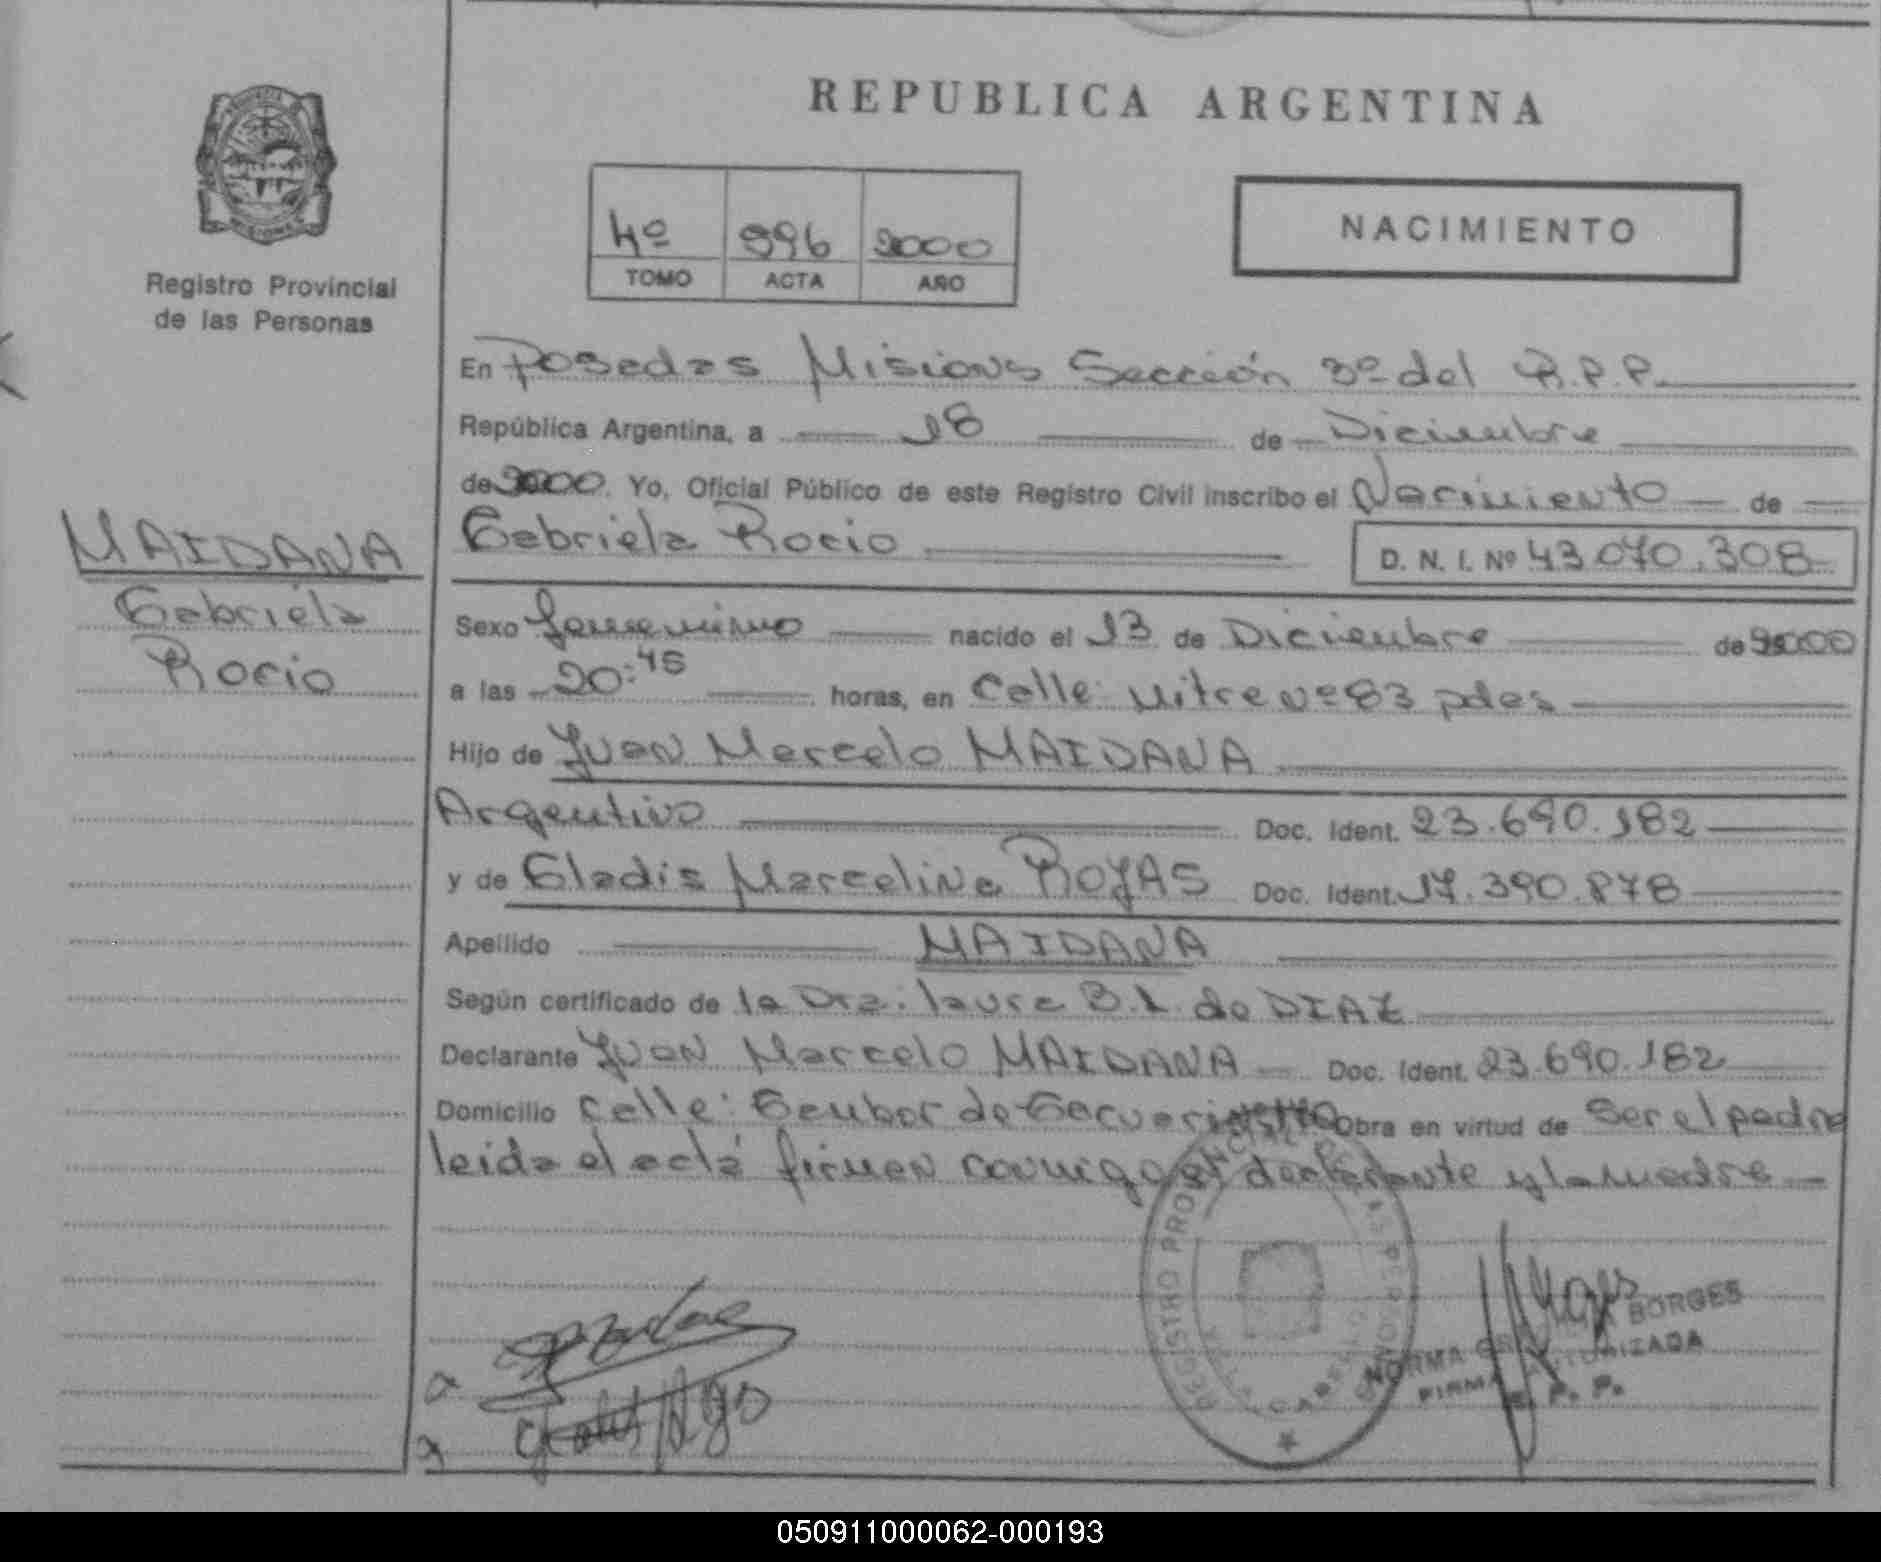 REPUBLICA ARGENTINA
Registro Provincial
de las Personas
4º 996 2000
TOMO ACTA AÑO
NACIMIENTO
En Posadas Misiones Sección 3º del R.P.P.
República Argentina, a 18 de Diciembre
de 2000. Yo, Oficial Público de este Registro Civil inscribo el Nacimiento de
Gabriela Rocio D. N. I. Nº 43.070.308
MAIDANA
Gabriela
Rocio
Sexo femenino nacido el 13 de Diciembre de 2000
a las 20:45 horas, en Calle: Mitre nº 83 pdas
Hijo de Juan Marcelo MAIDANA
Argentino Doc. Ident. 23.690.182
y de Gladis Marcelina ROJAS Doc. Ident. 17.390.878
Apellido MAIDANA
Según certificado de la Dra: laura B.L. de DIAZ
Declarante Juan Marcelo MAIDANA Doc. Ident. 23.690.182
Domicilio Calle: Obra en virtud de Ser el padre
leida el acta firman conmigo el declarante y la madre
REGISTRO
NORMA BORGES
FIRMA AUTORIZADA
R. P. P.
050911000062-000193